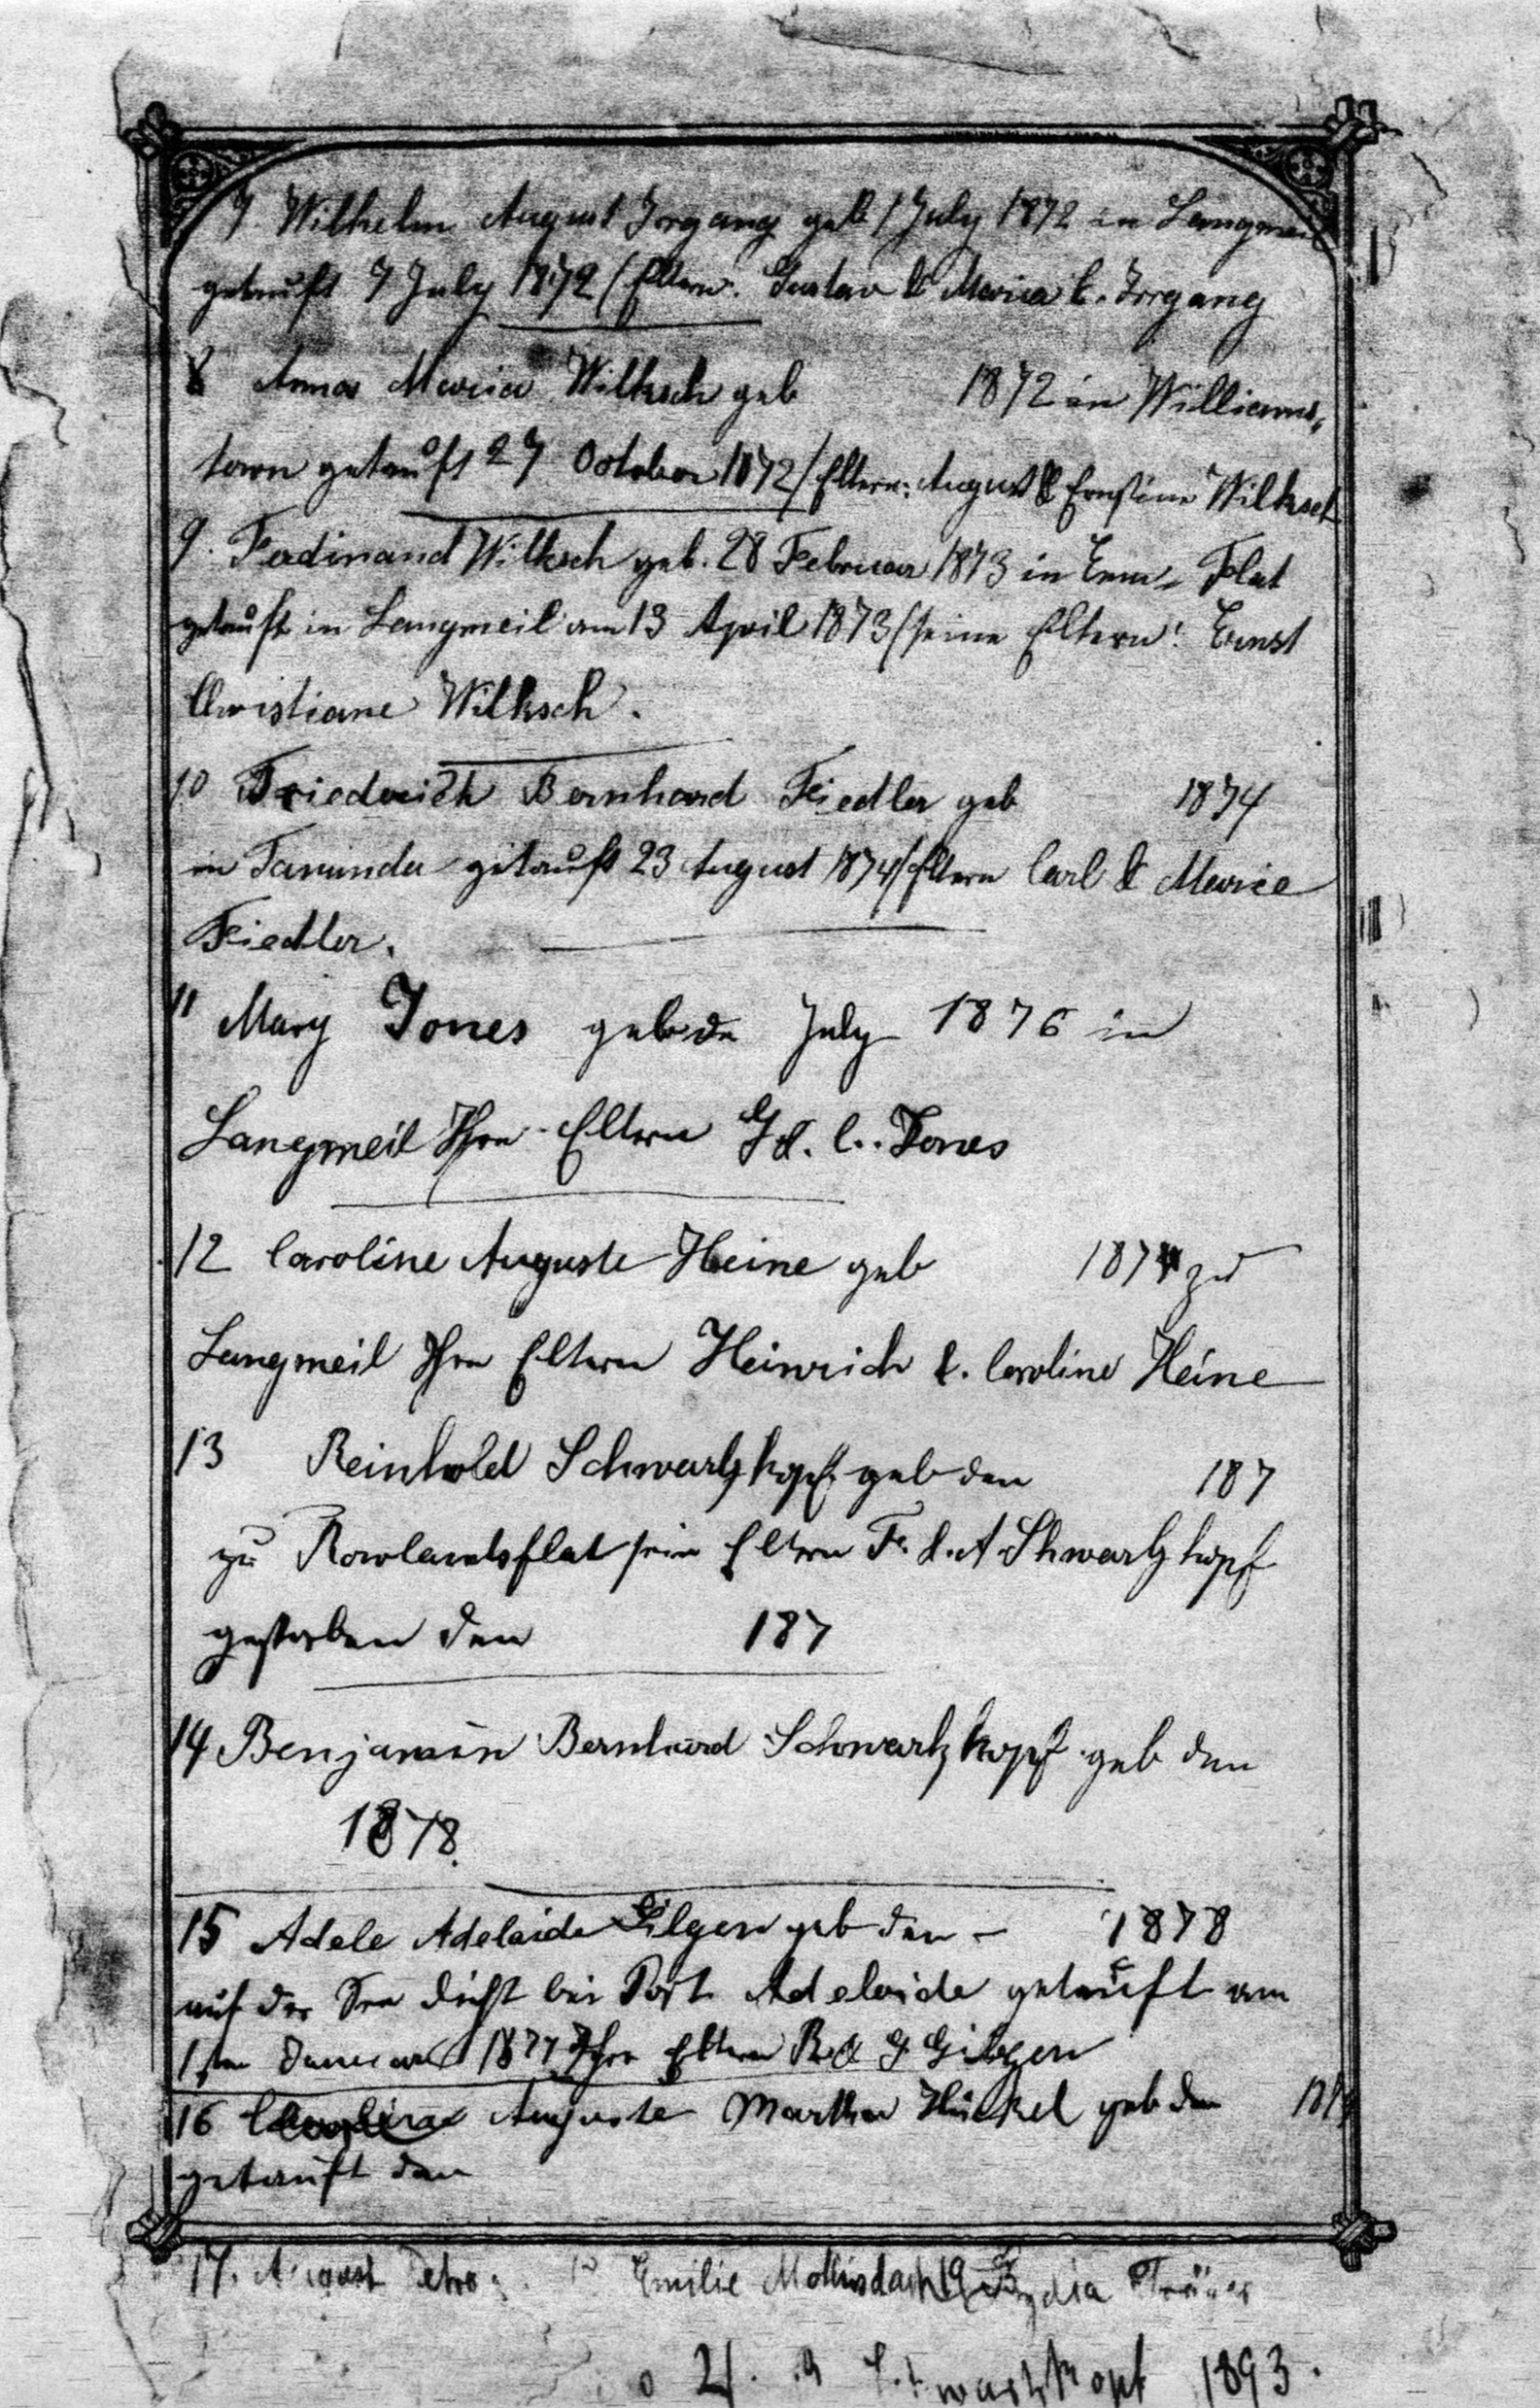 7. Wilhelm August Irrgang geb 1 July 1872 in Langmeil
getauft 7 July 1872 / Eltern: Gustav & Maria E. Irrgang
8 Anna Maria Wilksch geb 1872 in Williams-
town getauft 27 October 1872 / Eltern: August & Ernstine Wilksch
9. Ferdinand Wilksch geb. 28 Februar 1873 in Flat
getauft in Langmeil am 13 April 1873 / seine Eltern: Ernst
Christiane Wilksch.
10 Friedreich Bernhard Fiedler geb 1874
in Tanunda getauft 23 August 1874 / Eltern Carl & Marie
Fiedler.
11 Mary Jones geb de July 1876 in
Langmeil Ihre Eltern G &. C. Jones
12 Caroline Auguste Heine geb 1874 zu
Langmeil Ihre Eltern Heinrich &. Caroline Heine
13 Reinhold Schwartzkopf geb den 187
zu Rowlandsflat sein Eltern F. &. A Shwartzkopf
gestorben den 187
14 Benjamin Bernhard Schwartzkopf geb den
1878.
15 Adele Adelaide Gilgen geb den - 1878
auf der See dicht bei Port Adelaide getauft am
1ten Januar 1877 Ihre Eltern R & G Gilgen
16 Auguste Martha Hückel geb den 187
getauft den
17. August Emilie Mollindach 19 Lydia
21. Schwartzkopf 1893.